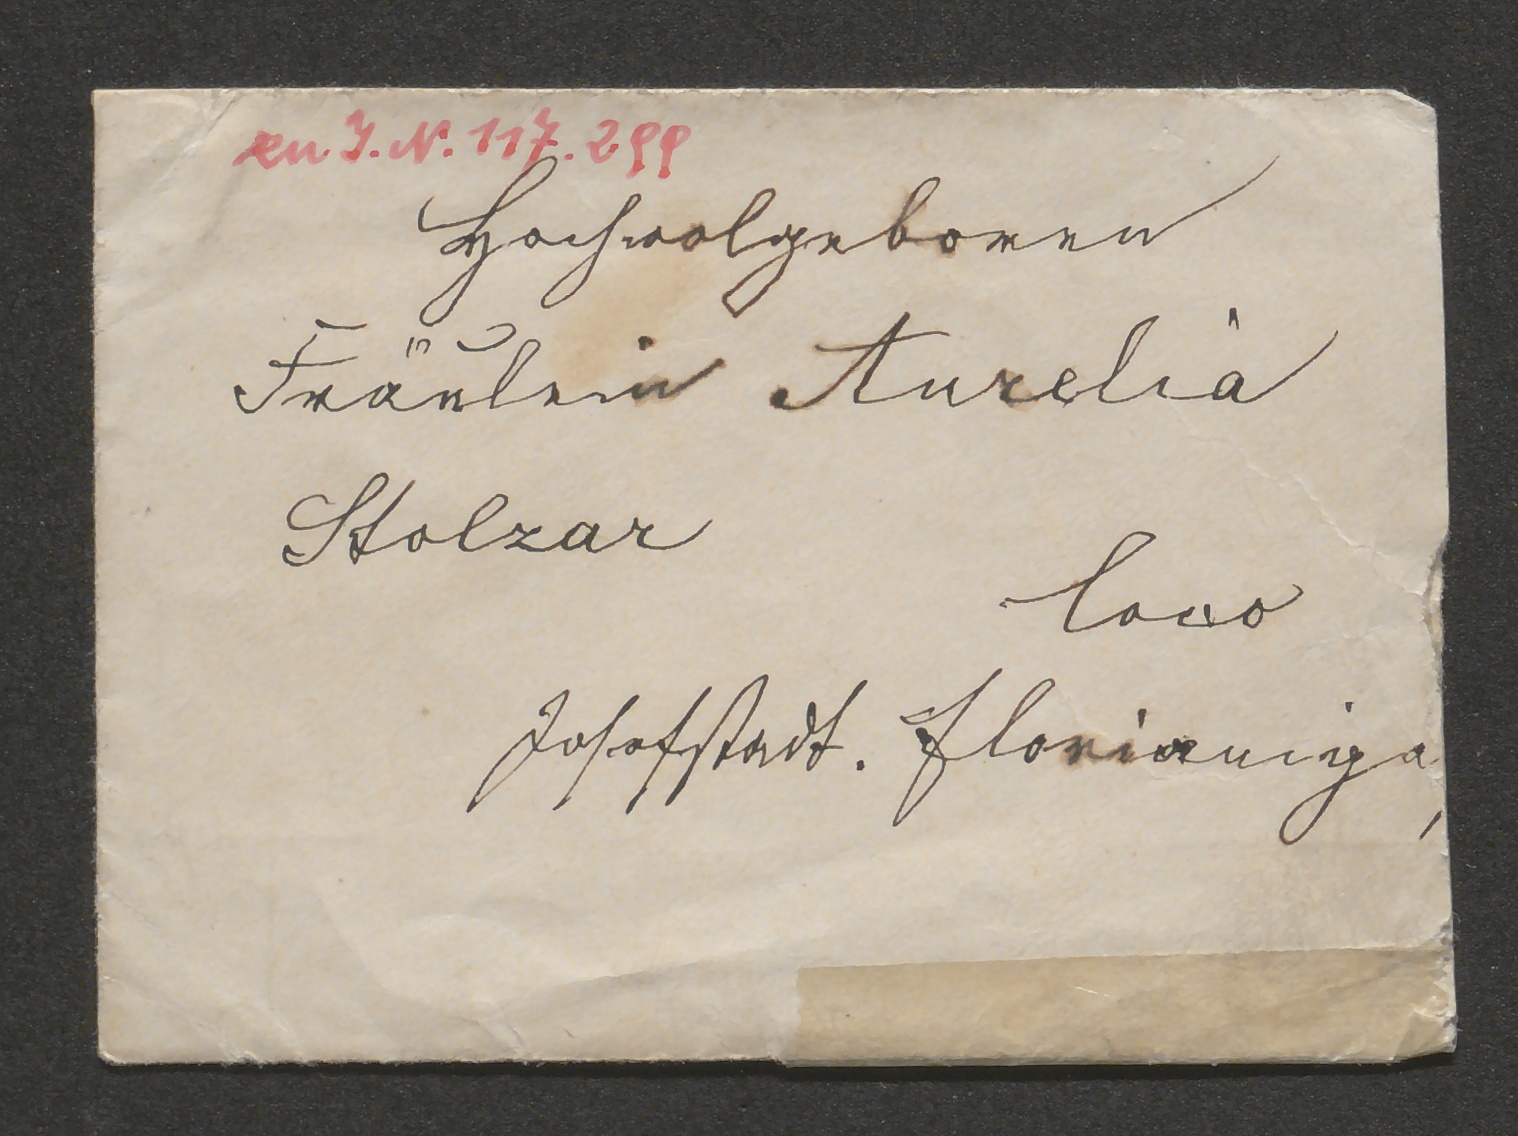 zu I.N. 117.299
Hochwolgeboren
Fräulein Aurelia
Stolzar
Loco
Josefstadt. Florianiga